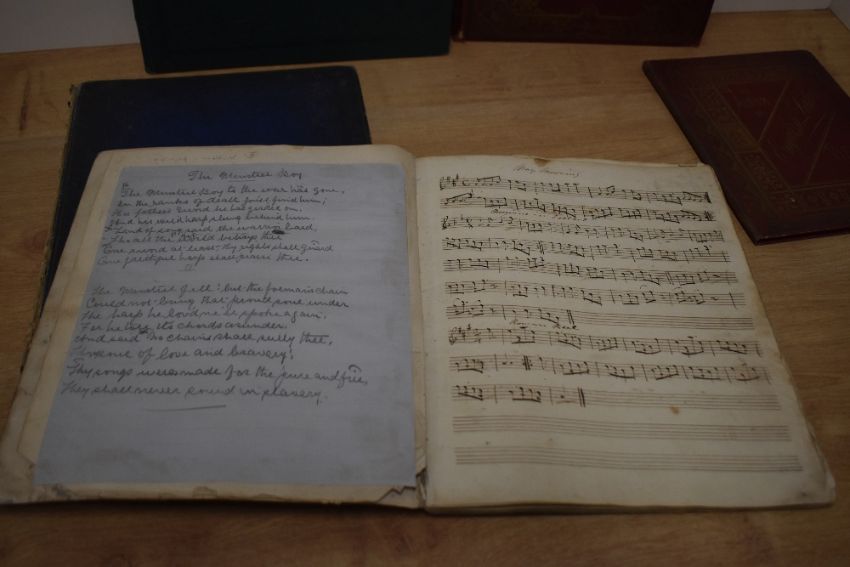 The Minstrel Boy
The Minstrel Boy to the war has gone,
In the ranks of death you'll find him;
His fathers sword he has girded on
And his wild harp slung behind him.
"Land of song said the warrior bard,
Tho all the world betrays thee
One sword at least thy rights shall guard
One faithful harp shall praise thee.
The Minstrel fell: but the foeman's chain
Could not bring that proud soul under
The harp he loved ne'er spoke again,
For he tore its chords asunder.
And said No chains shall sully thee,
Thou soul of love and bravery!
Thy songs were made for the pure and free,
They shall never sound in slavery.